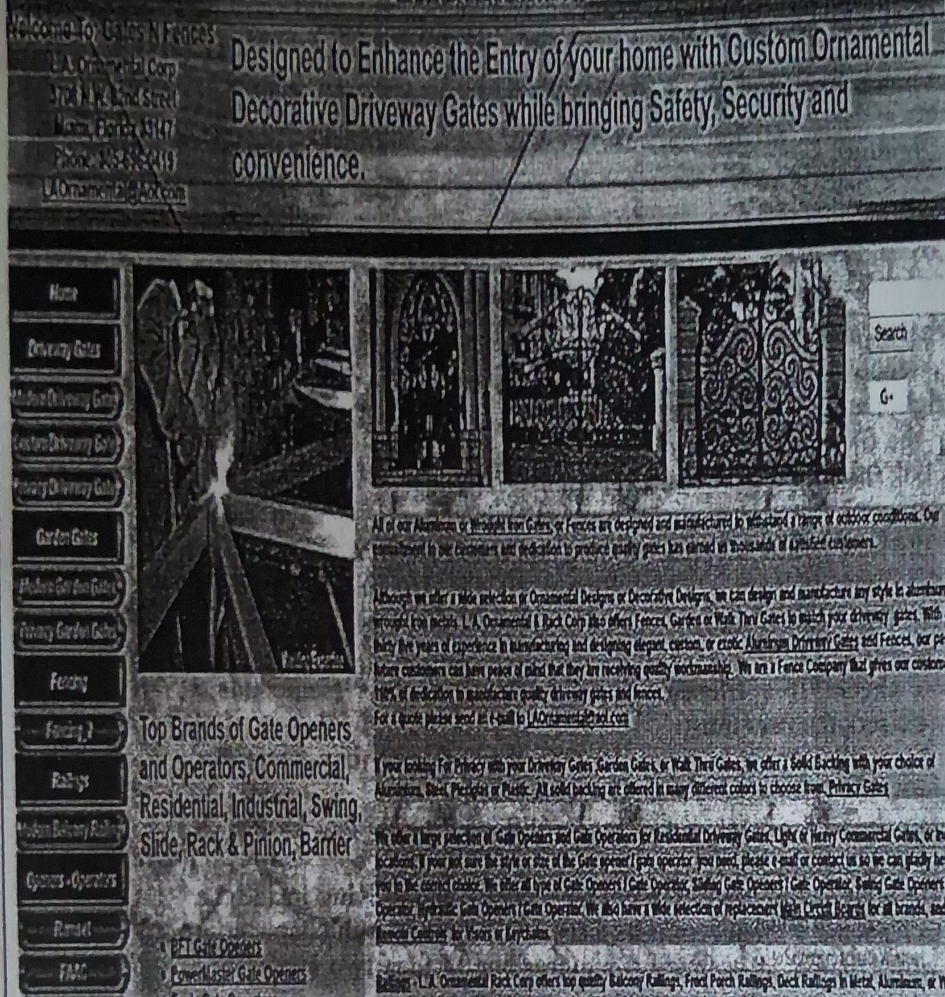 Welcome To: Gates N Fences
L.A. Ornamental Corp
3708 N.W. 82nd Street
Miami, Florida 33147
Phone: 305-696-0419
LAOrnamental@Aol.com
Designed to Enhance the Entry of your home with Custom Ornamental
Decorative Driveway Gates while bringing Safety, Security and
convenience.
Home
Driveway Gates
Modern Driveway Gates
Custom Driveway Gate
Privacy Driveway Gate
Garden Gates
Modern Garden Gates
Privacy Garden Gates
Fencing
Fencing 2
Railings
Modern Balcony Railing
Openers - Operators
Ramset
FAAC
Search
G+
Top Brands of Gate Openers
and Operators, Commercial,
Residential, Industrial, Swing,
Slide, Rack & Pinion, Barrier
BFT Gate Openers
PowerMaster Gate Openers
All of our Aluminum or Wrought Iron Gates, or Fences are designed and manufactured to withstand a range of outdoor conditions. Our
commitment to our customers and dedication to produce quality gates has earned us thousands of satisfied customers.
Although we offer a wide selection of Ornamental Designs or Decorative Designs, we can design and manufacture any style in aluminum
wrought iron metals. L.A. Ornamental & Rack Corp also offers Fences, Garden or Walk Thru Gates to match your driveway gates. With
thirty five years of experience in manufacturing and designing elegant, custom, or exotic Aluminum Driveway Gates and Fences, our
future customers can have peace of mind that they are receiving quality workmanship. We are a Fence Company that gives our
110% of dedication to manufacture quality driveway gates and fences.
For a quote please send us e-mail to LAOrnamental@aol.com
If your looking For Privacy with your Driveway Gates, Garden Gates, or Walk Thru Gates, we offer a Solid Backing with your choice of
Aluminum, Steel, Plexiglas or Plastic. All solid backing are offered in many different colors to choose from. Privacy Gates
We offer a large selection of Gate Openers and Gate Operators for Residential Driveway Gates, Light or Heavy Commercial Gates, or
locations. If your not sure the style or size of the Gate opener / gate operator you need, please e-mail or contact us so we can gladly
you to the correct choice. We offer all type of Gate Openers / Gate Operator, Sliding Gate Openers / Gate Operator, Swing Gate Openers
Operator, Hydraulic Gate Openers / Gate Operator. We also have a wide selection of replacement Main Circuit Boards for all brands, and
Remote Controls for Visors or Keychains.
Railings - L.A. Ornamental Rack Corp offers top quality Balcony Railings, Front Porch Railings, Deck Railings in Metal, Aluminum, or